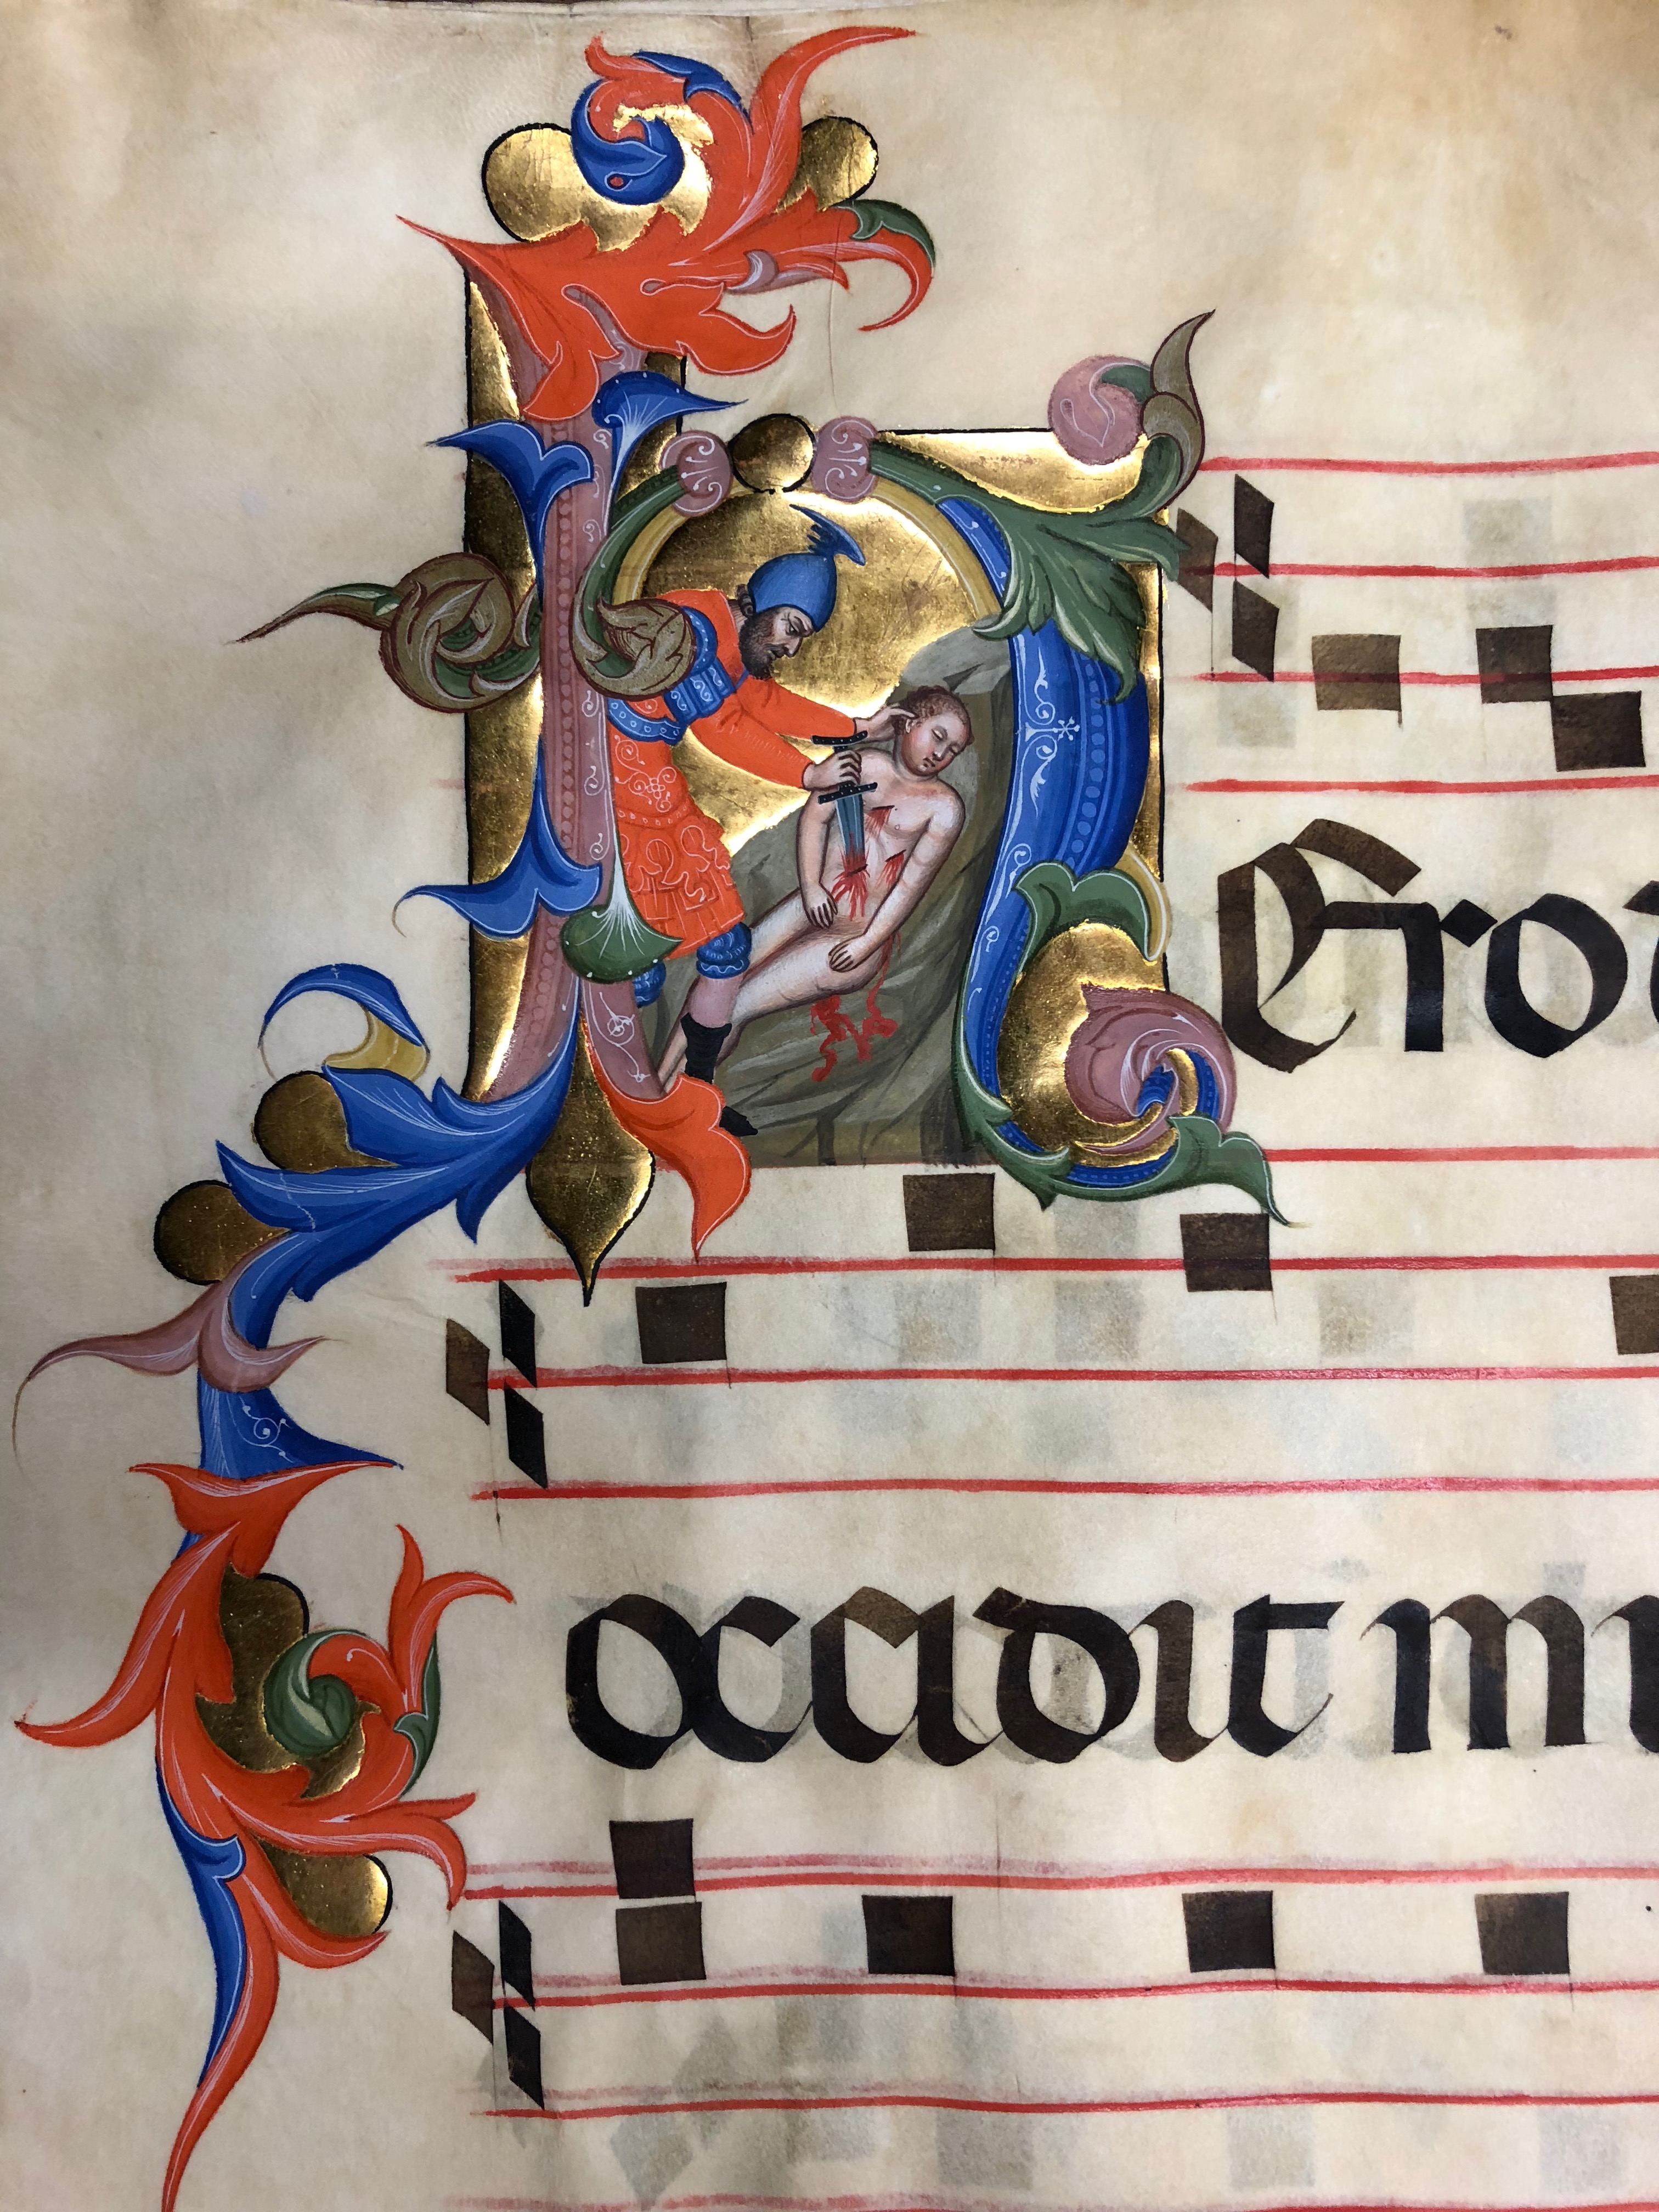 HEro
occidit m